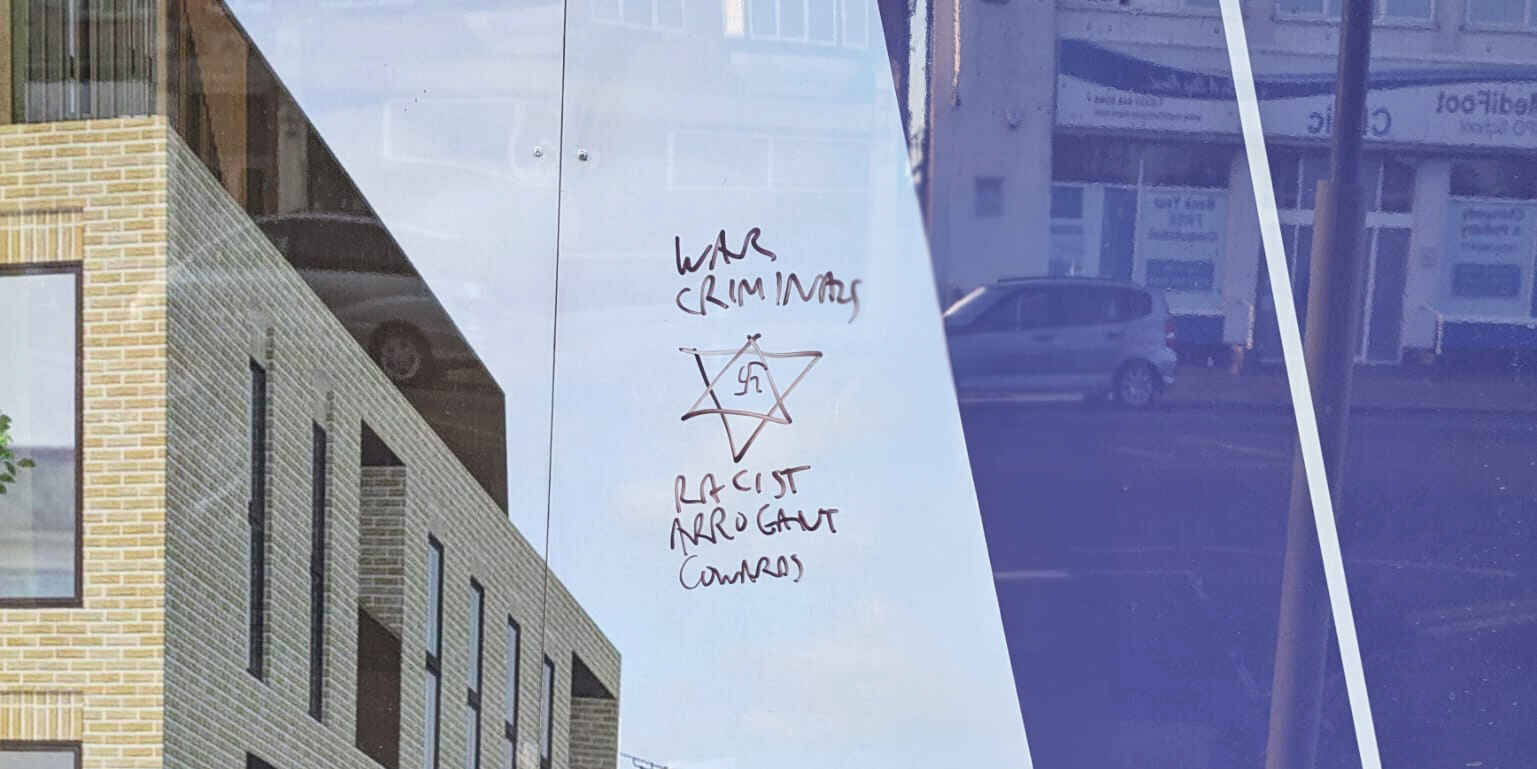 WAR
CRIMINALS
RACIST
ARROGANT
COWARDS
MediFoot
Clinic